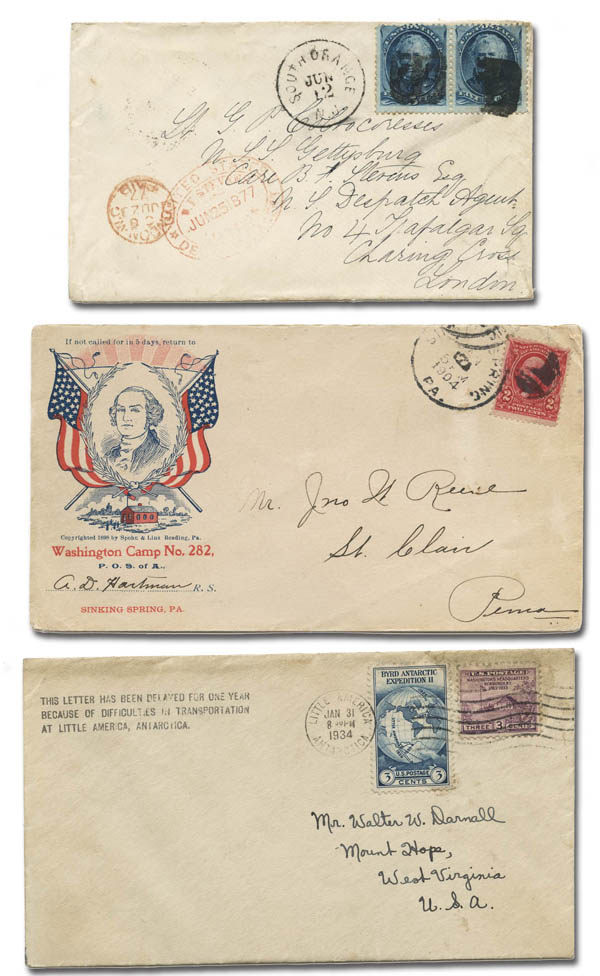 SOUTH ORANGE
JUN
12
N.J.
Lt. G. P.
U.S.S. Gettysburg
Care B. F. Stevens Esq
U S Despatch Agent
No 4 Trafalgar Sq
Charing Cross
London
LONDON
PAID
JUN 25 1877
U.S. POSTAGE
If not called for in 5 days, return to
Copyrighted 1898 by Spohn & Linn Reading, Pa.
Washington Camp No. 282,
P. O. S. of A.,
A. D. Hartman R. S.
SINKING SPRING, PA.
SPRING
1904
PA.
2 TWO CENTS 2
Mr. Jno H Reese
St. Clair
Penna
THIS LETTER HAS BEEN DELAYED FOR ONE YEAR
BECAUSE OF DIFFICULTIES IN TRANSPORTATION
AT LITTLE AMERICA, ANTARCTICA.
LITTLE AMERICA
JAN 31
8 PM
1934
ANTARCTICA
BYRD ANTARCTIC
EXPEDITION II
3 U.S. POSTAGE 3
CENTS
U.S. POSTAGE
WASHINGTON'S HEADQUARTERS
THREE 3 CENTS
Mr. Walter W. Darnall
Mount Hope,
West Virginia
U. S. A.